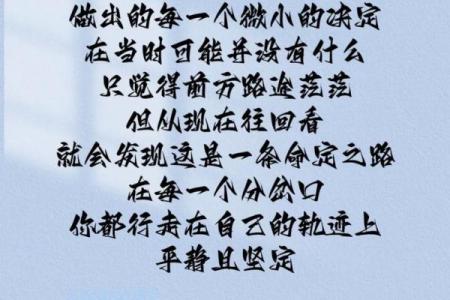 做出的每一个微小的决定
在当时可能并没有什么
只觉得前方路途茫茫
但从现在往回看
就会发现这是一条命定之路
在每一个分岔口
你都行走在自己的轨迹上
平静且坚定